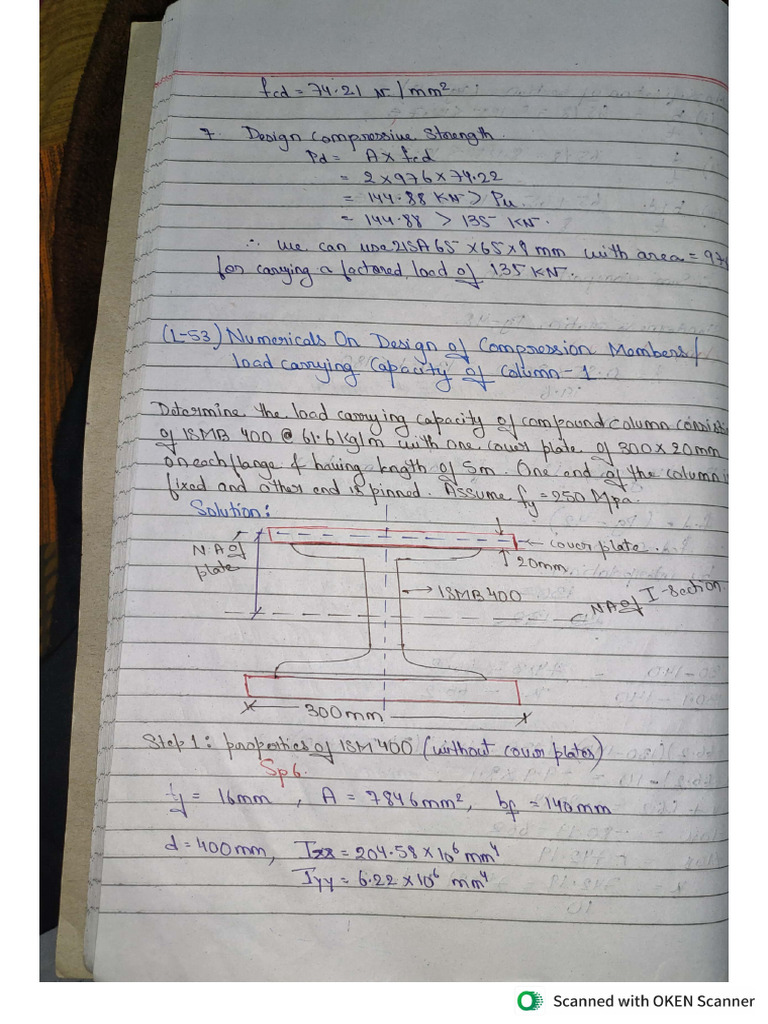 fcd = 74.21 N/mm²
7. Design Compressive Strength.
Pd = A x fcd
= 2 x 976 x 74.22
= 144.88 KN > Pu
= 144.88 > 135 KN.
∴ we can use 2ISA 65 x 65 x 9 mm with area = 976
for carrying a factored load of 135 KN.
(L-53) Numericals On Design of Compression Members/
load carrying Capacity of Column-1
Determine the load carrying capacity of compound column consisti
of ISMB 400 @ 61.6 kg/m with one cover plate of 300 x 20mm
on each flange & having length of 5m. One end of the column is
fixed and other end is pinned. Assume fy = 250 Mpa.
Solution:
N.A of
plate
cover plate
20mm
ISMB 400
N.A of I-Section
300mm
Step 1: properties of ISM 400 (without cover plates)
Sp 6.
tf = 16mm, A = 7846 mm², bf = 140mm
d = 400mm, Ixx = 204.58 x 10⁶ mm⁴
Iyy = 6.22 x 10⁶ mm⁴
Scanned with OKEN Scanner